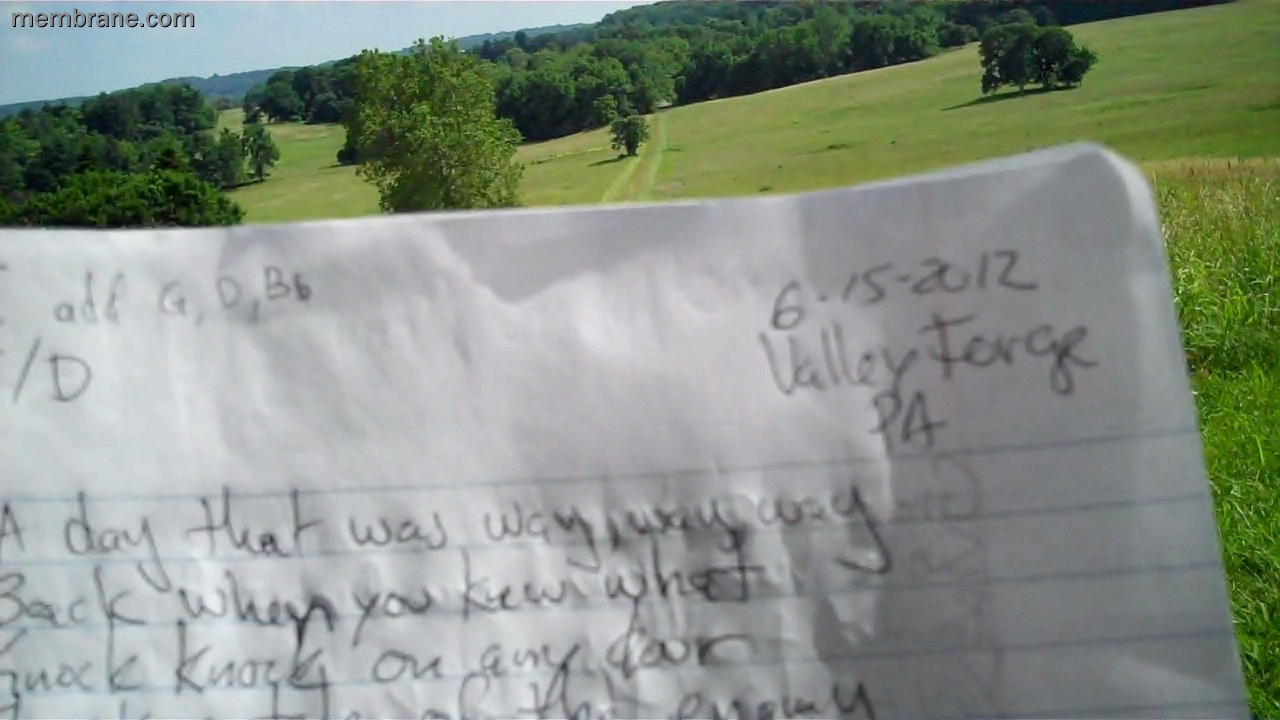 membrane.com
add G, D, Bb
/D
6-15-2012
Valley Forge
PA
A day that was way, way way
Back when you kew what
Knock Knock on any door
of the enemy